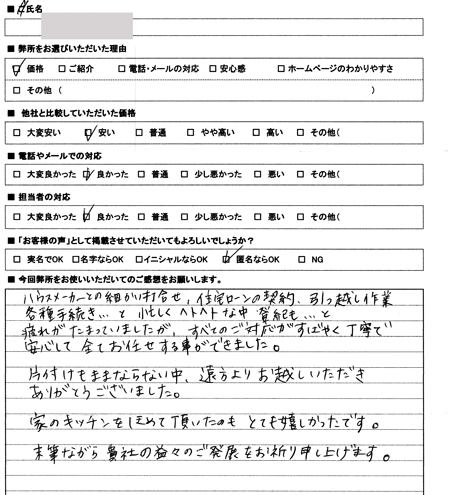 ■ 氏名
■ 弊所をお選びいただいた理由
☑ 価格 □ ご紹介 □ 電話・メールの対応 □ 安心感 □ ホームページのわかりやすさ
□ その他 ( )
■ 他社と比較していただいた価格
□ 大変安い ☑ 安い □ 普通 □ やや高い □ 高い □ その他(
■ 電話やメールでの対応
□ 大変良かった ☑ 良かった □ 普通 □ 少し悪かった □ 悪い □ その他(
■ 担当者の対応
□ 大変良かった ☑ 良かった □ 普通 □ 少し悪かった □ 悪い □ その他(
■ 「お客様の声」として掲載させていただいてもよろしいでしょうか?
□ 実名でOK □名字ならOK □イニシャルならOK ☑ 匿名ならOK □ NG
■ 今回弊所をお使いいただいてのご感想をお願いします。
ハウスメーカーとの細かい打合せ、住宅ローンの契約、引っ越し作業
各種手続き…と 忙しく ヘトヘトな中 登記も…と
疲れがたまっていましたが、すべてのご対応がすばやく丁寧で
安心して 全てお任せする事ができました。
片付けもままならない中、遠方よりお越しいただき
ありがとうございました。
家のキッチンをほめて頂いたのも とても嬉しかったです。
末筆ながら 貴社の益々のご発展をお祈り申し上げます。